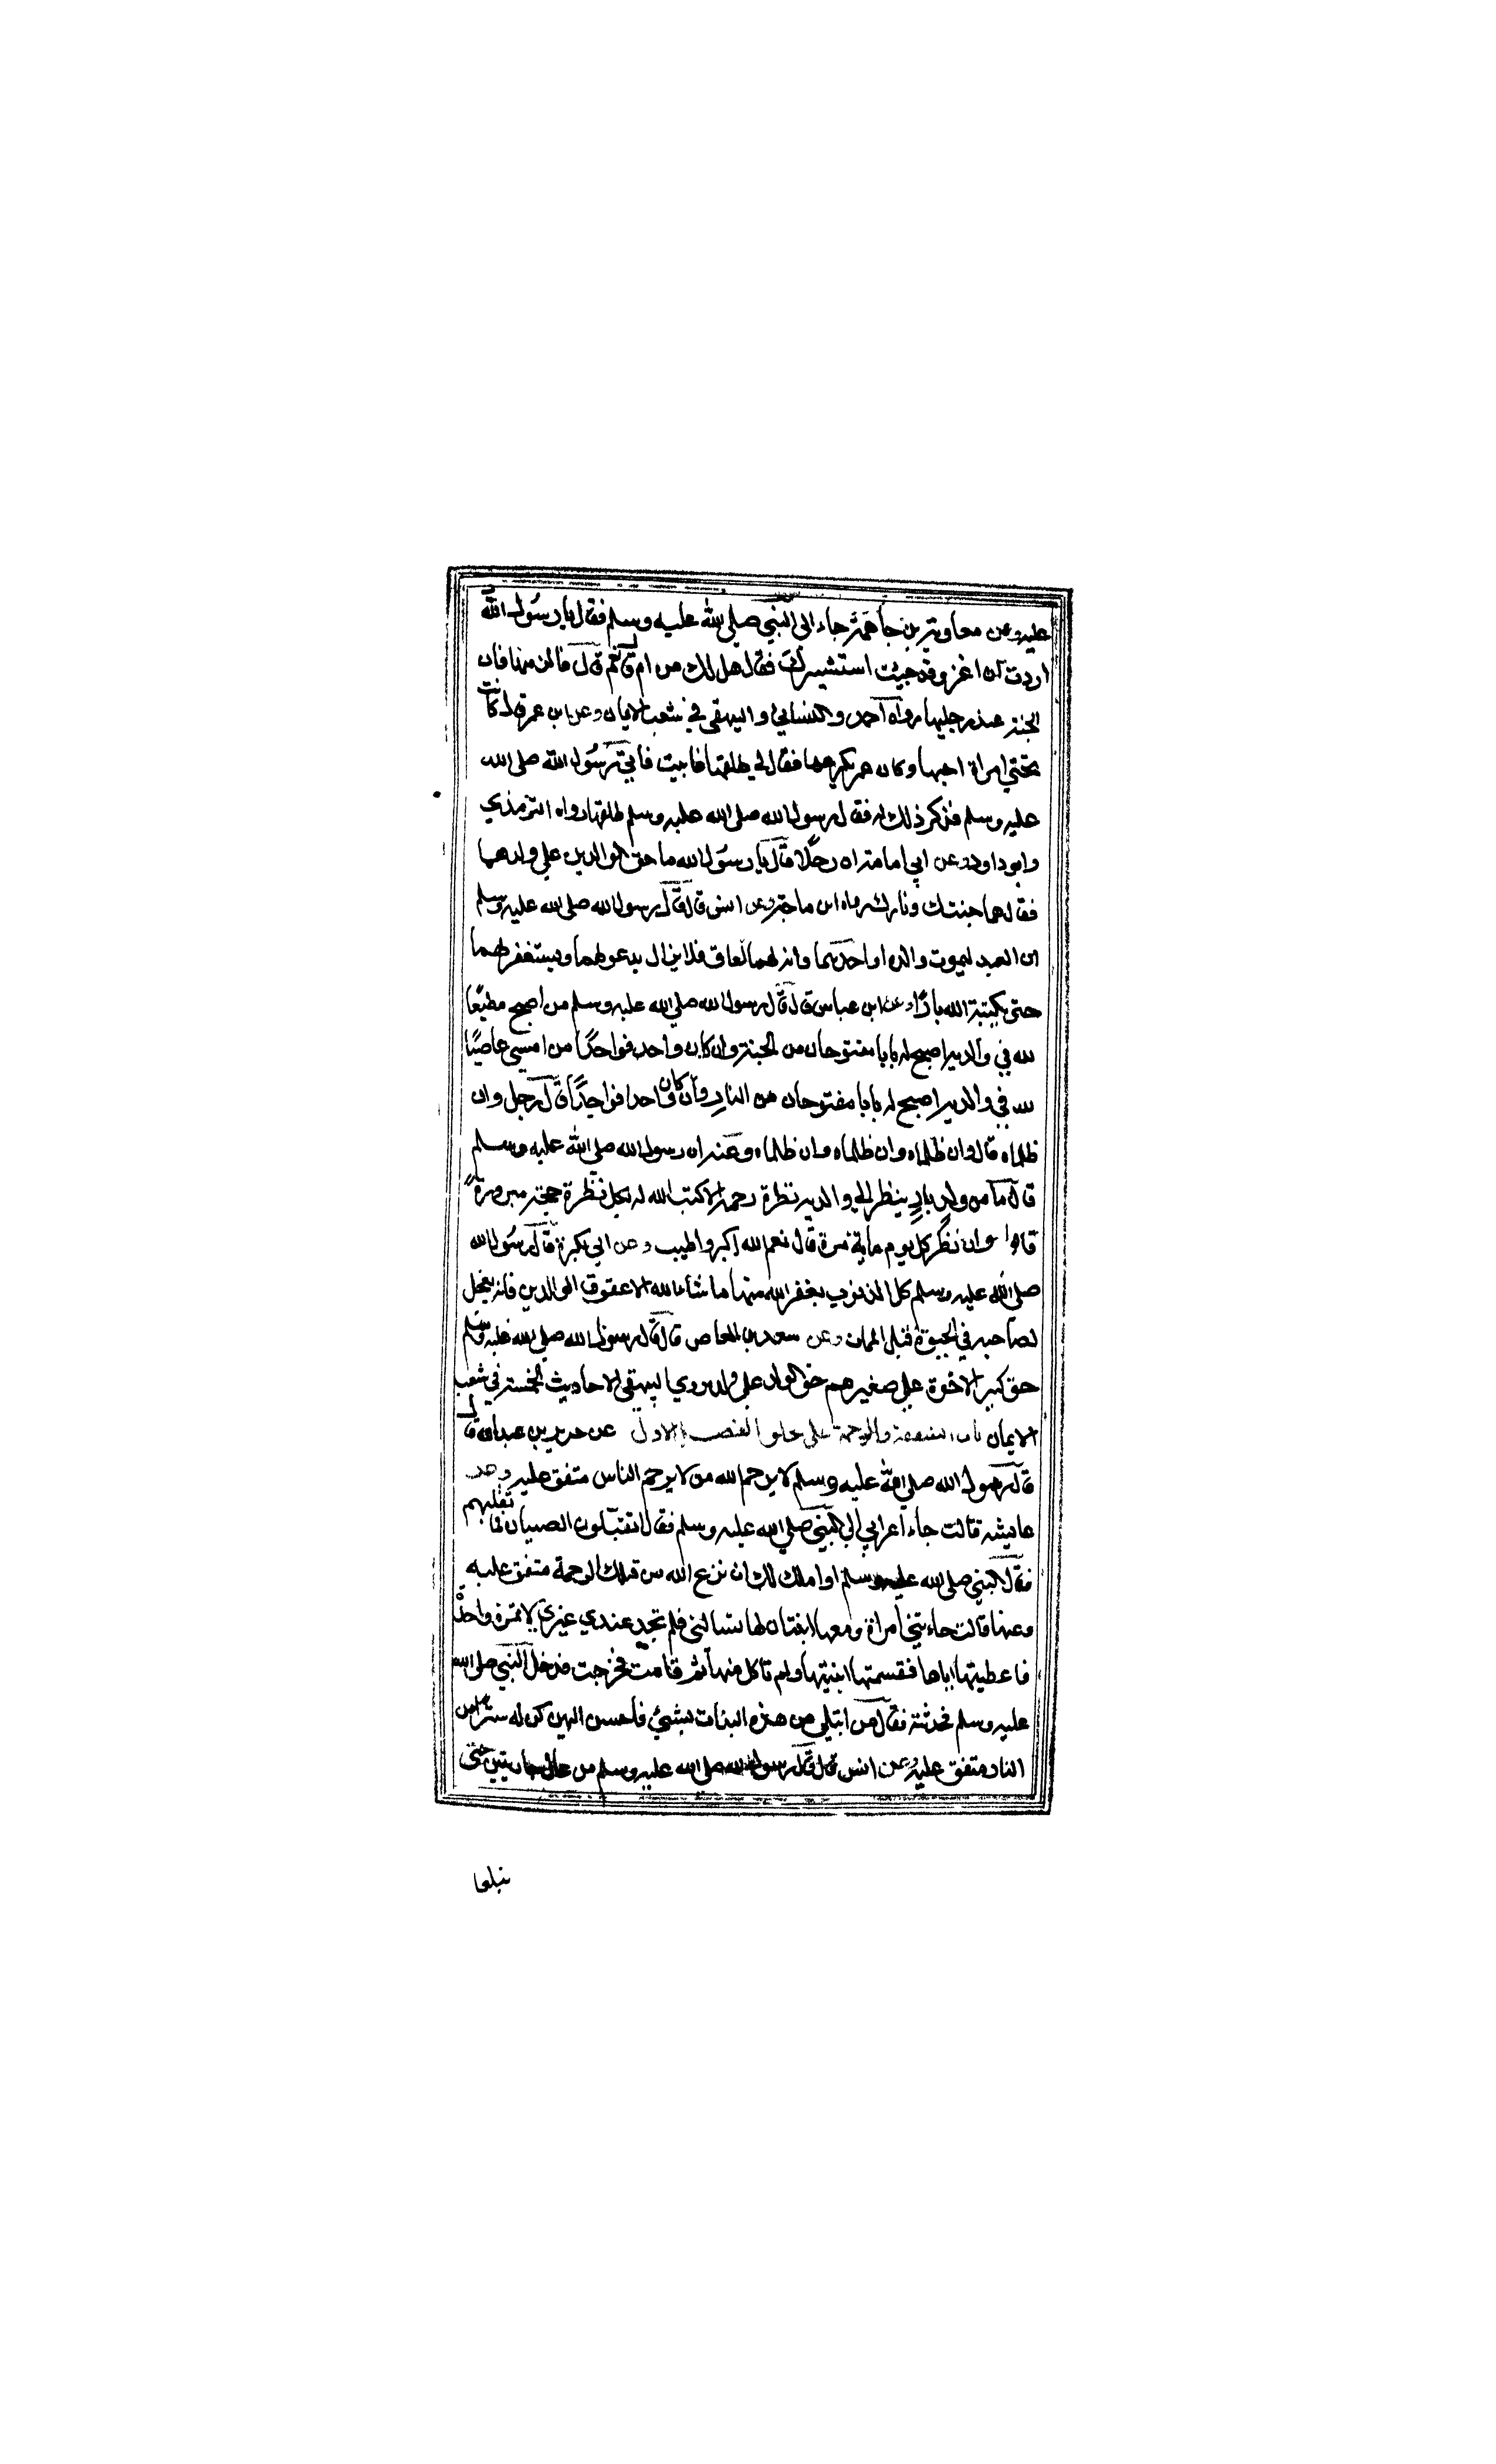 عليه وعن معاوية بن جاهمة جاء الى النبي صلى الله عليه وسلم فقال يا رسول الله
اردت ان اغزو وقد جيئت استشيرك فقال هل لك من ام قال نعم قال فالزمها فان
الجنة عند رجليها رواه احمد والنسائي والبيهقي في شعب الايمان وعن ابن عمر قال كانت
تحتي امراة احبها وكان عمر يكرهها فقال لي طلقها فابيت فاتي رسول الله صلى الله
عليه وسلم فذكر ذلك له فقال رسول الله صلى الله عليه وسلم طلقها رواه الترمذي
وابوداود وعن ابي امامة ان رجلا قال يا رسول الله ما حق الوالدين على ولدهما
فقال هما جنتك ونارك رواه ابن ماجة وعن انس قال قال رسول الله صلى الله عليه وسلم
ان العبد ليموت والداه او احدهما وانه لهما لعاق فلا يزال يدعو لهما ويستغفر لهما
حتى يكتبه الله بارًا وعن ابن عباس قال قال رسول الله صلى الله عليه وسلم من اصبح مطيعًا
لله في والديه اصبح له بابا مفتوحان من الجنة وان كان واحد فواحدًا من امسى عاصيًا
لله في والديه اصبح له بابا مفتوحان من النار وان كان واحدا فواحدًا قال رجل وان
ظلماه قال وان ظلماه وان ظلماه وان ظلماه وعنه ان رسول الله صلى الله عليه وسلم
قال ما من ولد بار ينظر الى والديه نظرة رحمة الا كتب الله له بكل نظرة حجة مبرورة
قالوا وان نظر كل يوم ماية مرة قال نعم الله اكبر واطيب وعن ابي بكرة قال رسول الله
صلى الله عليه وسلم كل الذنوب يغفر الله منها ما شاء الله الا عقوق الوالدين فانه يعجل
لصاحبه في الحيوة قبل الممات وعن سعد بن العاص قال قال رسول الله صلى الله عليه وسلم
حق كبير الاخوة على صغيرهم حق الوالد على ولده روي البيهقي الاحاديث الخمسة في شعب
الايمان باب الشفقة والرحمة على خلق الفصل الاول عن جرير بن عبد الله قال
قال رسول الله صلى الله عليه وسلم لا يرحم الله من لا يرحم الناس متفق عليه وعن
عايشه قالت جاء اعرابي الى النبي صلى الله عليه وسلم فقال اتقبلون الصبيان فما نقبلهم
فقال النبي صلى الله عليه وسلم اوا ملك لك ان نزع الله من قبلك الرحمة متفق عليه
وعنها قالت جاءتني امراة ومعها ابنتان لها تسالني فلم تجد عندي غير تمرة واحدة
فاعطيتها اياها فقسمتها ابنتيها ولم تاكل منها ثم قامت فخرجت فدخل النبي صلى الله
عليه وسلم فحدثته فقال من ابتلي من هذه البنات بشيئ فاحسن اليهن كن له سترا من
النار متفق عليه وعن انس قال قال رسول الله صلى الله عليه وسلم من عال جاريتين حتى
تبلغا